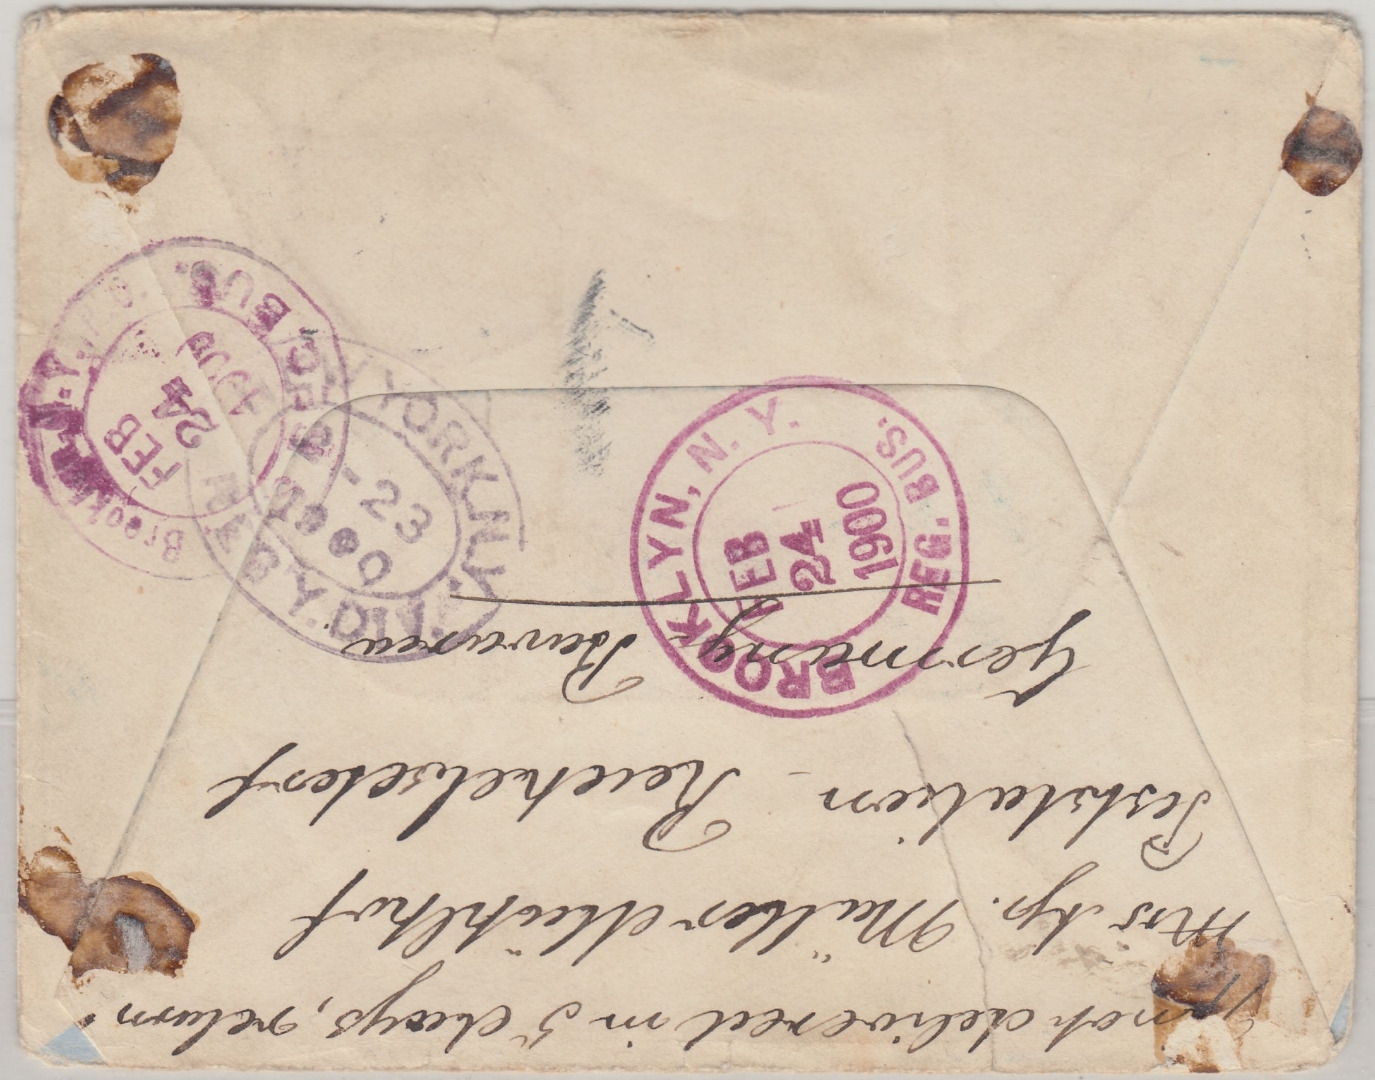 BROOKLYN, N. Y.
REG. BUS.
FEB
24
1900
Brooklyn, N.Y. P.O.
REG. BUS.
FEB
24
1900
N. YORK, N.Y.
REG'Y DIV.
2-23
1900
If not delivered in 5 days, return
Mrs Müller
Poststation – Reichelsdorf
Germany Bavaria